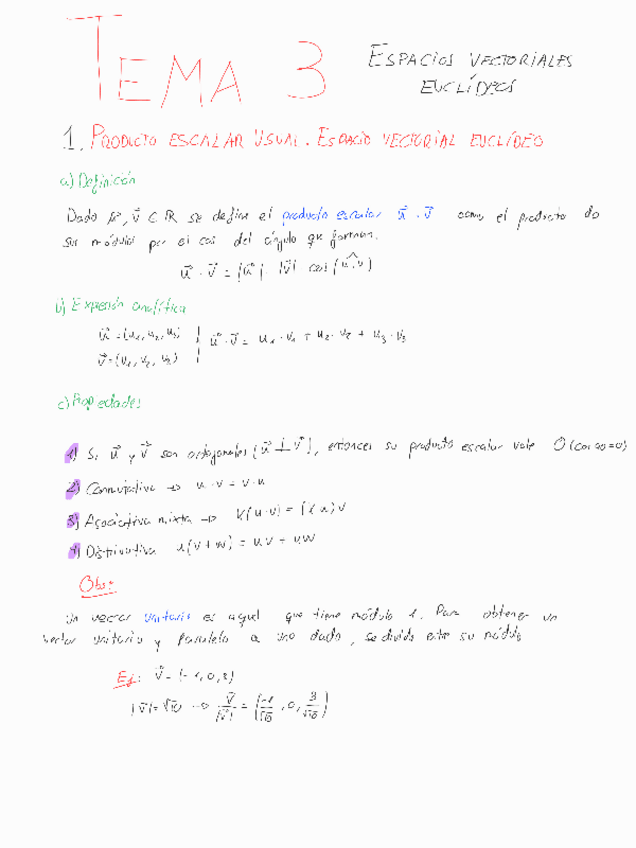 TEMA 3 ESPACIOS VECTORIALES
EUCLÍDEOS
1. PRODUCTO ESCALAR USUAL. ESPACIO VECTORIAL EUCLÍDEO
a) Definición
Dado u⃗, v⃗ ⊂ ℝ se define el producto escalar u⃗ · v⃗ como el producto de
sus módulos por el cos del ángulo que forman.
u⃗ · v⃗ = |u⃗| · |v⃗| cos(u,v)
b) Expresión analítica
u⃗ = (u₁, u₂, u₃) | u⃗ · v⃗ = u₁ · v₁ + u₂ · v₂ + u₃ · v₃
v⃗ = (v₁, v₂, v₂)
c) Propiedades
1) Si u⃗ y v⃗ son ortogonales (u⃗ ⊥ v⃗), entonces su producto escalar vale 0 (cos 90 = 0)
2) Conmutativa → u · v = v · u
3) Asociativa mixta → k(u · v) = (k u) v
4) Distributiva u(v + w) = uv + uw
Obs:
Un vector unitario es aquel que tiene módulo 1. Para obtener un
vector unitario y paralelo a uno dado, se divide entre su módulo
Ej: v⃗ = (-1, 0, 3)
|v⃗| = √10 → v⃗/|v⃗| = (-1/√10, 0, 3/√10)